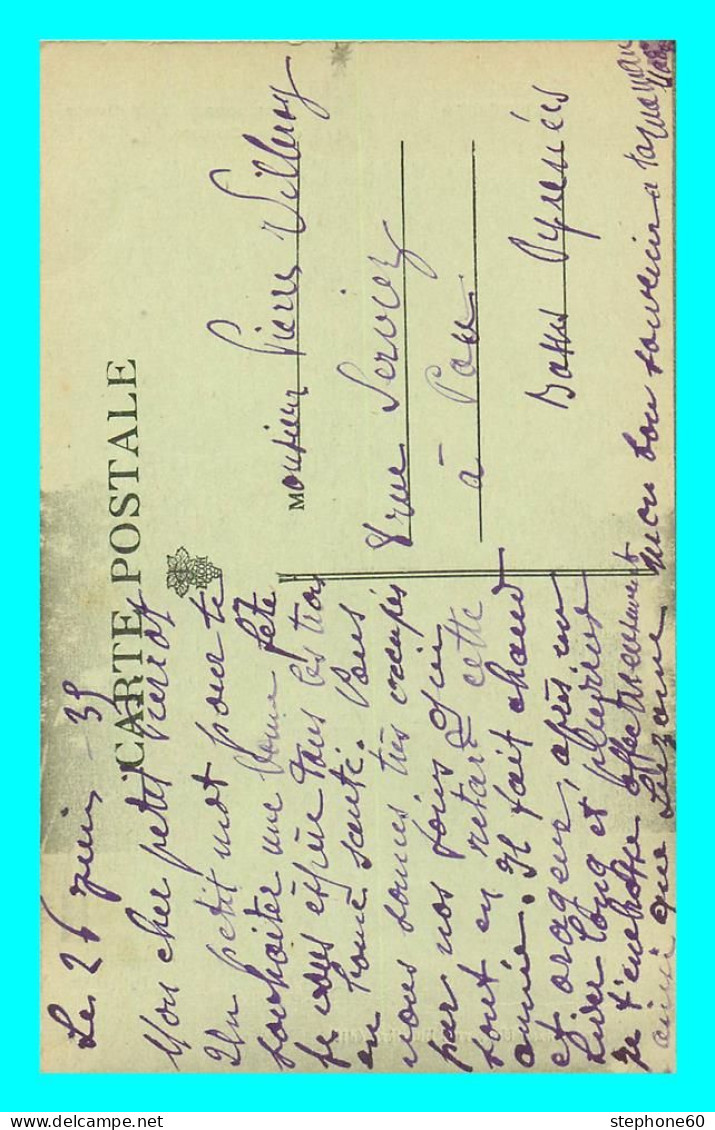 CARTE POSTALE
Le 26 juin - 35
Mon cher petit Pierrot
Un petit mot pour te
souhaiter une bonne fête
Je vous espère tous les trois
en bonne santé. Nous
nous sommes très occupés
par nos foins qui
sont en retard cette
année. Il fait chaud
et orageux, après un
hiver long et pluvieux
Je t'embrasse affectueusement
ainsi que
mon bon souvenir a ta maman
Monsieur Pierre Villeroy
8 rue Serviez
à Pau
Basses Pyrénées
stephone60